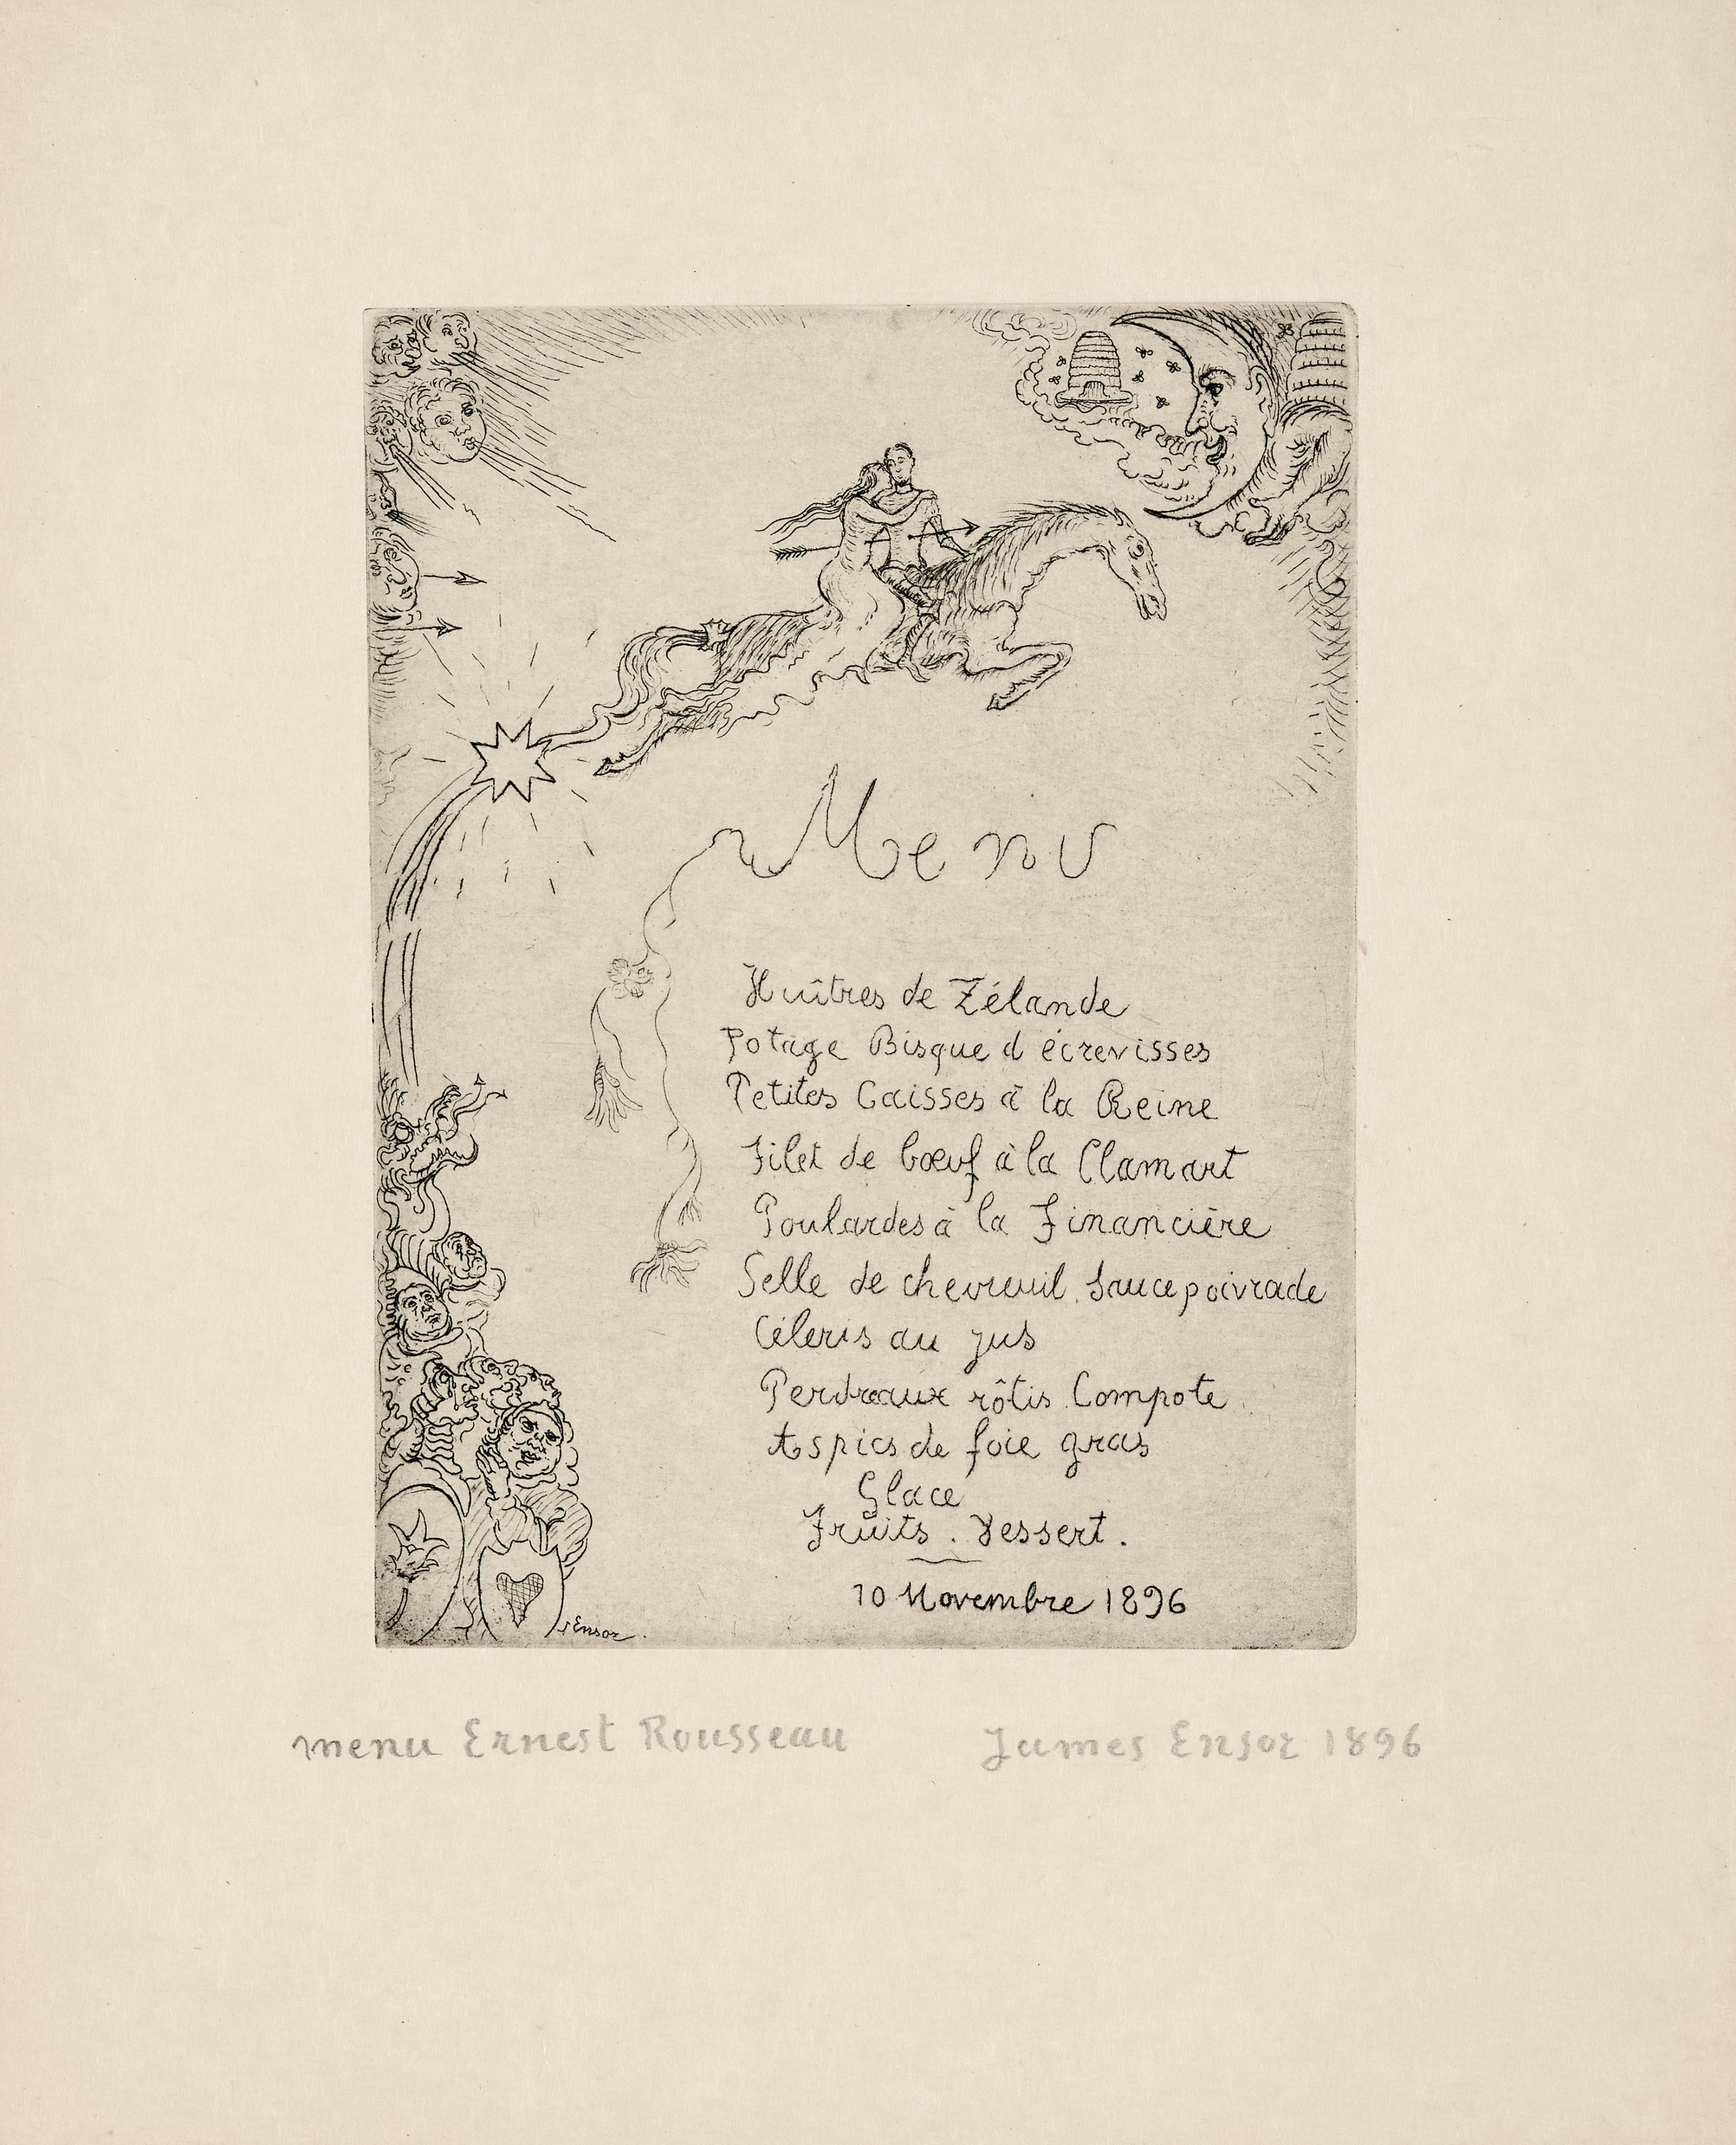 Menu
Huîtres de Zélande
Potage Bisque d écrevisses
Petites Caisses à la Reine
Filet de bœuf à la Clamart
Poulardes à la Financière
Selle de chevreuil. Sauce poivrade
Céleris au jus
Perdreaux rôtis. Compote
Aspics de foie gras
Glace
Fruits. Dessert.
10 Novembre 1896
Ensor
menu Ernest Rousseau James Ensor 1896